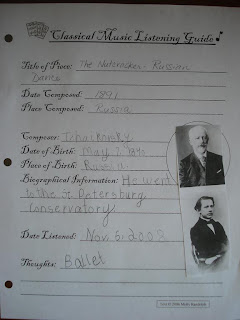 Classical Music Listening Guide
Title of Piece: The Nutcracker Russian
Dance
Date Composed: 1891
Place Composed: Russia
Composer: Tchaikovsky
Date of Birth: May 7, 1840
Place of Birth: Russia
Biographical Information: He went
to the St. Petersburg
Conservatory.
Date Listened: Nov. 5, 2008
Thoughts: Ballet